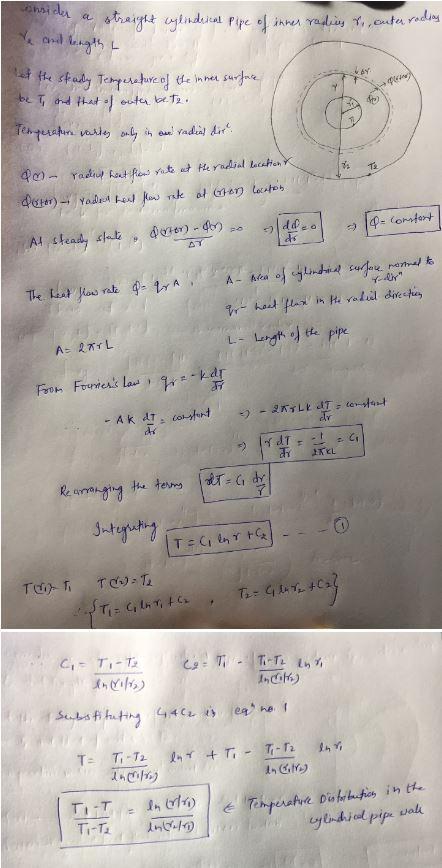 consider a straight cylindrical pipe of inner radius r₁, outer radius
r₂ and length L
Let the steady Temperature of the inner surface
be T₁ and that of outer be T₂.
Temperature varies only in radial dirⁿ.
Δr
r
r₁
T₁
Q(r)
Q(r+Δr)
r₂
T₂
Q(r) - radial heat flow rate at the radial location r
Q(r+Δr) → radial heat flow rate at (r+Δr) location
At steady state, Q(r+Δr) - Q(r) / Δr = 0 ⇒ dQ/dr = 0 ⇒ Q = constant
The heat flow rate Q = qr A, A - Area of cylindrical surface normal to
r-dirⁿ
qr - heat flux in the radial direction
A = 2πrL
L - Length of the pipe
From Fourier's Law, qr = -k dT/dr
- Ak dT/dr = constant ⇒ - 2πrLk dT/dr = constant
⇒ r dT/dr = -1/2πKL = C₁
Rearranging the terms dT = C₁ dr/r
Integrating T = C₁ ln r + C₂ - - - - ①
T(r₁) = T₁ T(r₂) = T₂
∴ {T₁ = C₁ ln r₁ + C₂ , T₂ = C₁ ln r₂ + C₂}
∴ C₁ = T₁-T₂ / ln(r₁/r₂) C₂ = T₁ - T₁-T₂ / ln(r₁/r₂) ln r₁
Substituting C₁ & C₂ in eqⁿ no. 1
T = T₁-T₂ / ln(r₁/r₂) ln r + T₁ - T₁-T₂ / ln(r₁/r₂) ln r₁
T₁-T / T₁-T₂ = ln(r/r₁) / ln(r₂/r₁) ← Temperature Distribution in the
cylindrical pipe wall